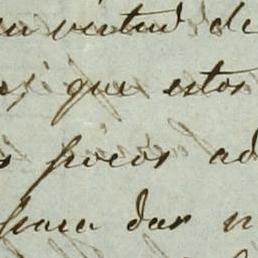 en virtud de
que estos
pocos ad
para dar n